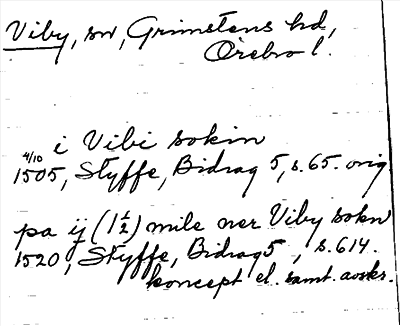 Viby, sn, Grimstens hd,
Örebro l.
i Vibi sokin
4/10 1505, Styffe, Bidrag 5, s. 65. orig
pa ij (1½) mile ner Viby sokn
1520, Styffe, Bidrag 5, s. 614.
koncept el. samt. avskr.